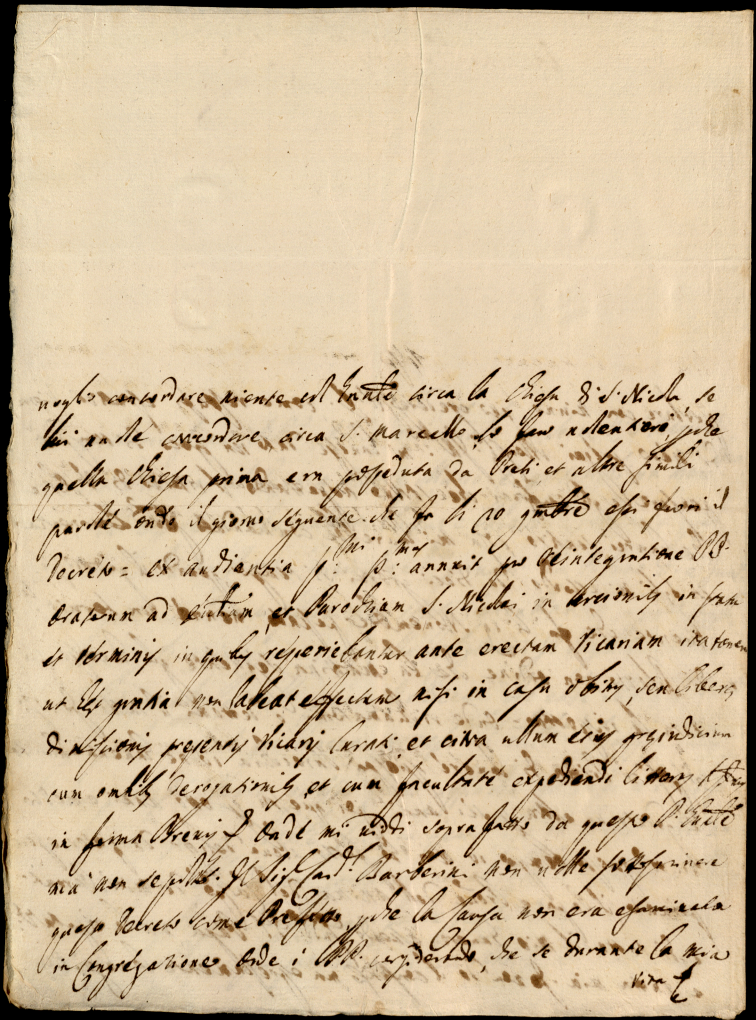 voglio concordare niente col Ennte circa la Chiesa di S. Nicola, se
lei vuole concordare circa S. Marcello, lo farò volentieri, pche
quella Chiesa prima era posseduta da Preti, et altre simili
parole onde il giorno seguente che fu li 20 gmbre uscì fuori il
Decreto = Ex audientia SSmi SSmus annuit pro Reintegratione PP.
Oratorum ad et Parochiam S. Nicolai in Arcionibus in statu
et terminis in quibus reperiebantur ante erectam Vicariam ita tamen
ut hęc gratia non habeat effectum nisi in casu obitus, seu liberę
dimissionis presentis Vicarij Curati et citra ullum eius prejudicium
cum omnibus derogationibus et cum facultate expediendi litteras
in forma Brevis Onde mi viddi soprafatto da questo P.
ma non sepolto. Il Sigr Cardl Barberini non volle sottoscrivere
questo Decreto come Prefetto, pche la Causa non era esaminata
in Congregatione onde i PP. considerando, che se durante la mia
vita